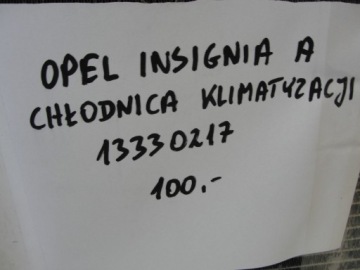 OPEL INSIGNIA A
CHŁODNICA KLIMATYZACJI
13330217
100.-